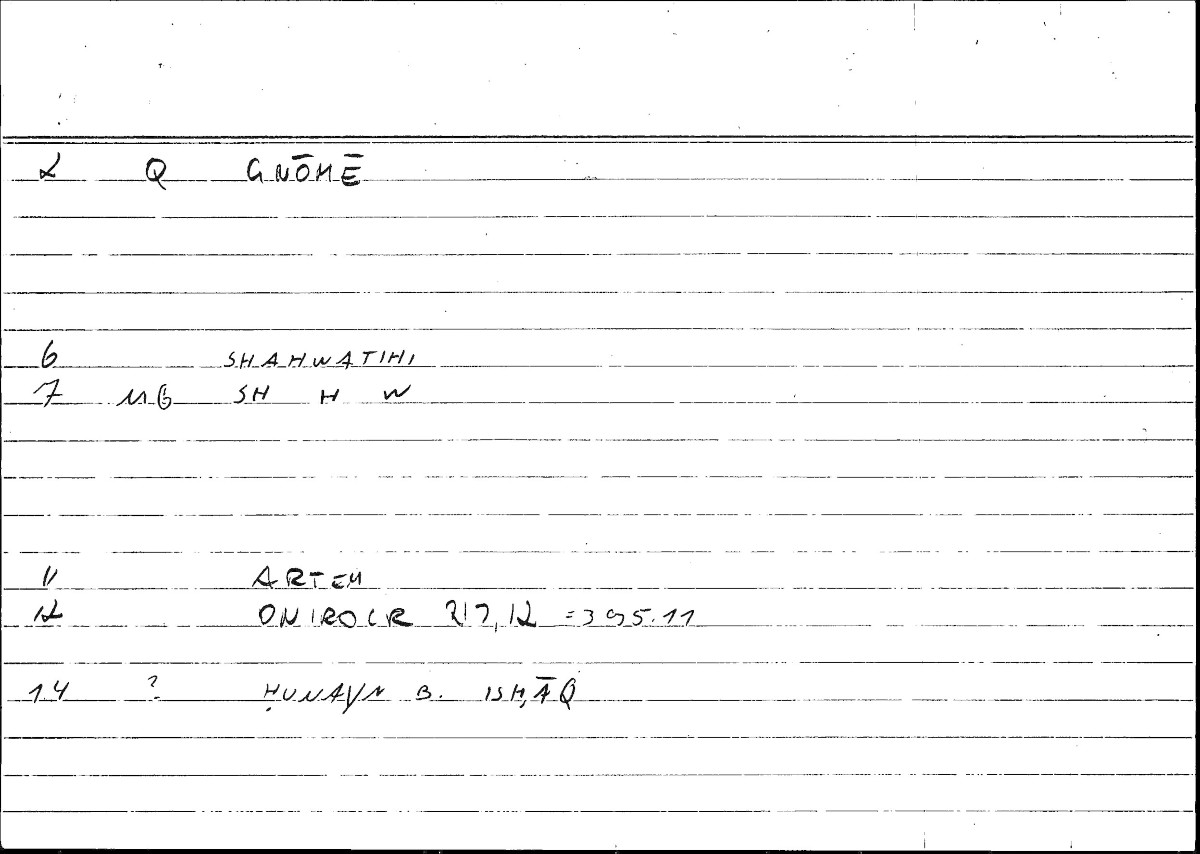 2 Q GNŌMĒ
6 SHAHWATIHI
7 MG SH H W
11 ARTEM
12 ONIROCR 217,12 =395.11
14 ? ḤUNAYN B. ISḤĀQ